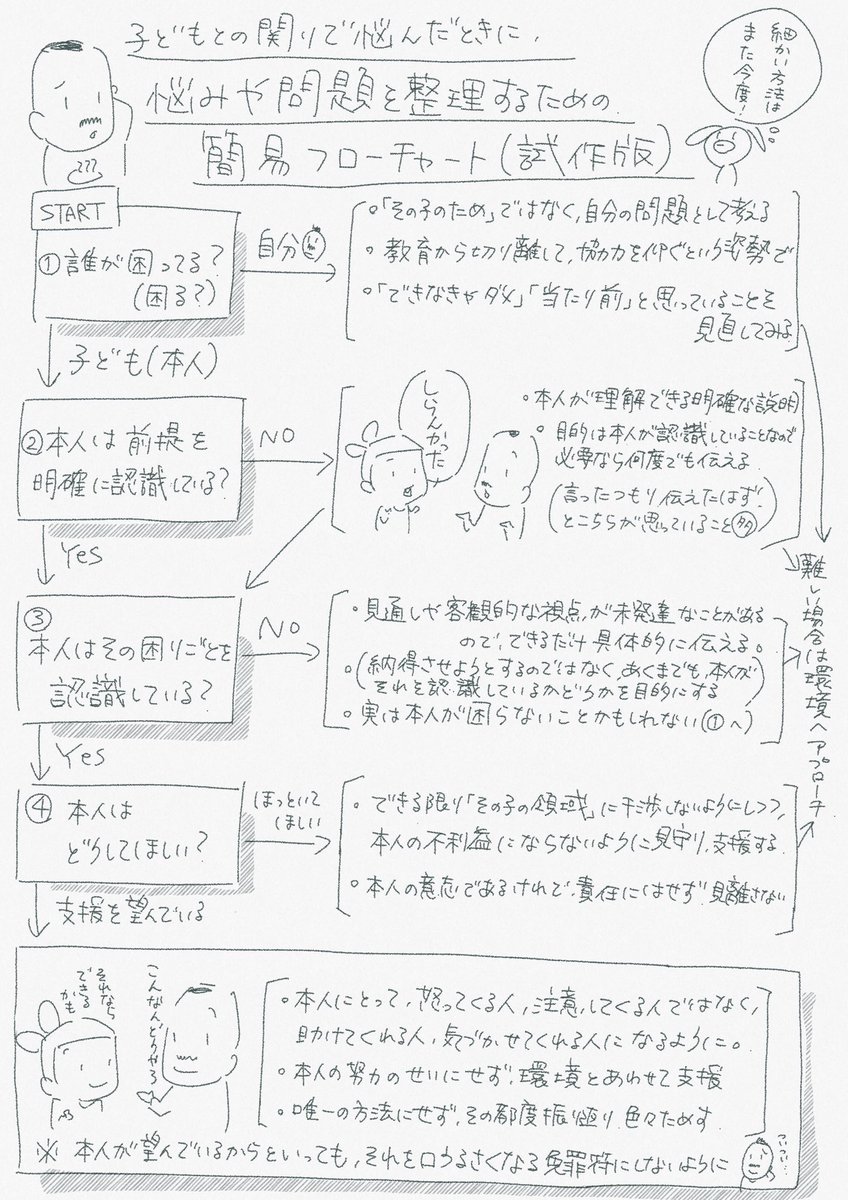 子どもとの関りで悩んだときに、
悩みや問題を整理するための
簡易フローチャート(試作版)
細かい方法は
また今度!
???
START
①誰が困ってる?
(困る?)
自分
。「その子のため」ではなく、自分の問題として考える
。教育から切り離して、協力を仰ぐという姿勢で
。「できなきゃダメ」「当たり前」と思っていることを
見直してみる
子ども(本人)
②本人は前提を
明確に認識している?
NO
しらんかった
。本人が理解できる明確な説明
。目的は本人が認識していることなので
必要なら何度でも伝える
(言ったつもり伝えたはず、
とこちらが思っていること多)
Yes
③
本人はその困りごとを
認識している?
NO
・見通しや客観的な視点が未発達なことがある
ので、できるだけ具体的に伝える。
・(納得させようとするのではなく、あくまでも、本人が
それを認識しているかどうかを目的にする)
・実は本人が困らないことかもしれない(①へ)
難しい場合は環境へアプローチ
Yes
④本人は
どうしてほしい?
ほっといて
ほしい
・できる限り「その子の領域」に干渉しないようにしつつ、
本人の不利益にならないように見守り、支援する
・本人の意志であるけれど、責任にはせず、見離さない
支援を望んでいる
それなら
できる
かも
こんなんどうやろ
・本人にとって、怒ってくる人、注意してくる人ではなく、
助けてくれる人、気づかせてくれる人になるように。
・本人の努力のせいにせず、環境とあわせて支援
・唯一の方法にせず、その都度振り返り 色々ためす
※ 本人が望んでいるからといっても、それを口うるさくなる免罪符にしないように